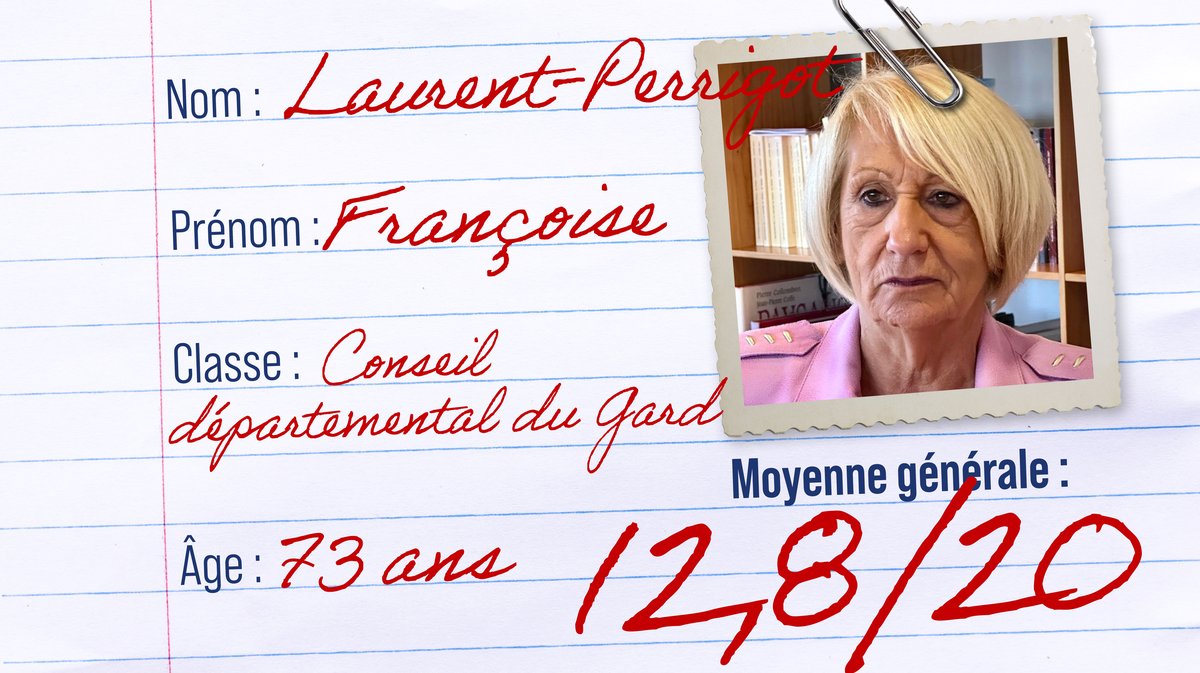 Nom : Laurent-Perrigot
Prénom : Françoise
Classe : Conseil
départemental du Gard
Âge : 73 ans
Pierre Collombert
Moyenne générale :
12,8/20